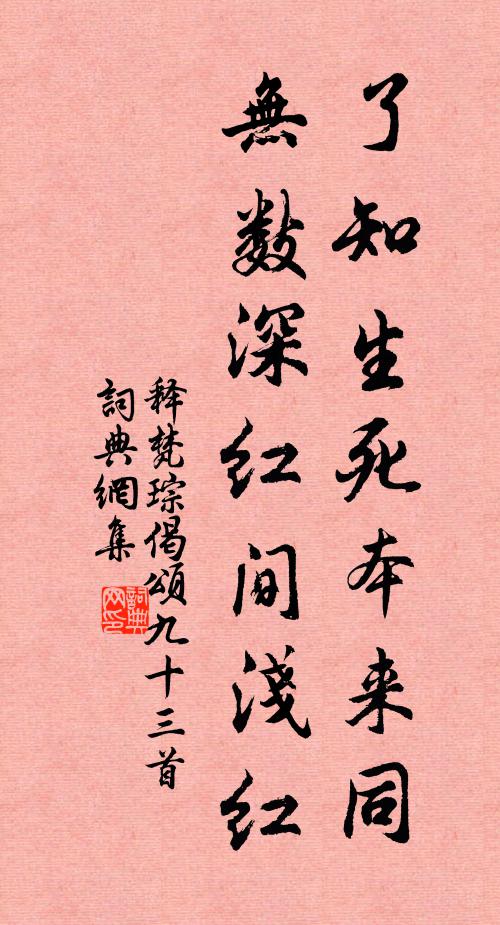 了知生死本来同
無数深红间淺红
释梵琮偈頌九十三首
詞典網集
詞典网印